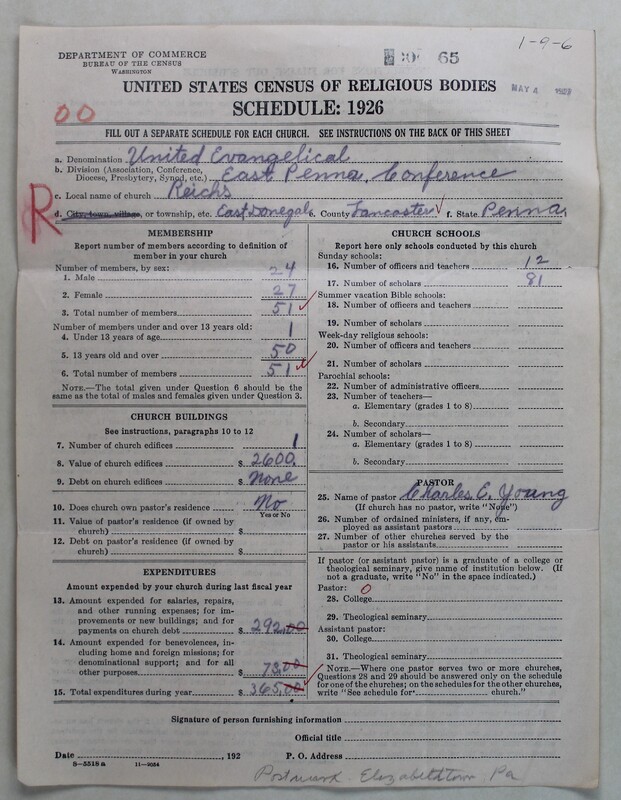 1-9-6
DEPARTMENT OF COMMERCE
BUREAU OF THE CENSUS
WASHINGTON
65
MAY 4
UNITED STATES CENSUS OF RELIGIOUS BODIES
SCHEDULE: 1926
00
FILL OUT A SEPARATE SCHEDULE FOR EACH CHURCH. SEE INSTRUCTIONS ON THE BACK OF THIS SHEET
a. Denomination United Evangelical
b. Division (Association, Conference, Diocese, Presbytery, Synod, etc.) East Penna. Conference
c. Local name of church Reichs
R
d. City, town, village, or township, etc. East Donegal e. County Lancaster f. State Penna.
MEMBERSHIP
Report number of members according to definition of
member in your church
Number of members, by sex:
1. Male 24
2. Female 27
3. Total number of members 51
Number of members under and over 13 years old:
4. Under 13 years of age 1
5. 13 years old and over 50
6. Total number of members 51
NOTE.—The total given under Question 6 should be the
same as the total of males and females given under Question 3.
CHURCH BUILDINGS
See instructions, paragraphs 10 to 12
7. Number of church edifices 1
8. Value of church edifices $ 2600.
9. Debt on church edifices $ None
10. Does church own pastor's residence No
Yes or No
11. Value of pastor's residence (if owned by
church) $
12. Debt on pastor's residence (if owned by
church) $
EXPENDITURES
Amount expended by your church during last fiscal year
13. Amount expended for salaries, repairs,
and other running expenses; for im-
provements or new buildings; and for
payments on church debt $ 292.00
14. Amount expended for benevolences, in-
cluding home and foreign missions; for
denominational support; and for all
other purposes $ 73.00
15. Total expenditures during year $ 365.00
CHURCH SCHOOLS
Report here only schools conducted by this church
Sunday schools:
16. Number of officers and teachers 12
17. Number of scholars 81
Summer vacation Bible schools:
18. Number of officers and teachers
19. Number of scholars
Week-day religious schools:
20. Number of officers and teachers
21. Number of scholars
Parochial schools:
22. Number of administrative officers
23. Number of teachers—
a. Elementary (grades 1 to 8)
b. Secondary
24. Number of scholars—
a. Elementary (grades 1 to 8)
b. Secondary
PASTOR
25. Name of pastor Charles E. Young
(If church has no pastor, write "None")
26. Number of ordained ministers, if any, em-
ployed as assistant pastors
27. Number of other churches served by the
pastor or his assistants
If pastor (or assistant pastor) is a graduate of a college or
theological seminary, give name of institution below. (If
not a graduate, write "No" in the space indicated.)
Pastor: 0
28. College
29. Theological seminary
Assistant pastor:
30. College
31. Theological seminary
NOTE.—Where one pastor serves two or more churches,
Questions 28 and 29 should be answered only on the schedule
for one of the churches; on the schedules for the other churches,
write "See schedule for church."
Signature of person furnishing information
Official title
Date , 192 P. O. Address
8—5518 a 11—9034
Postmark Elizabethtown Pa